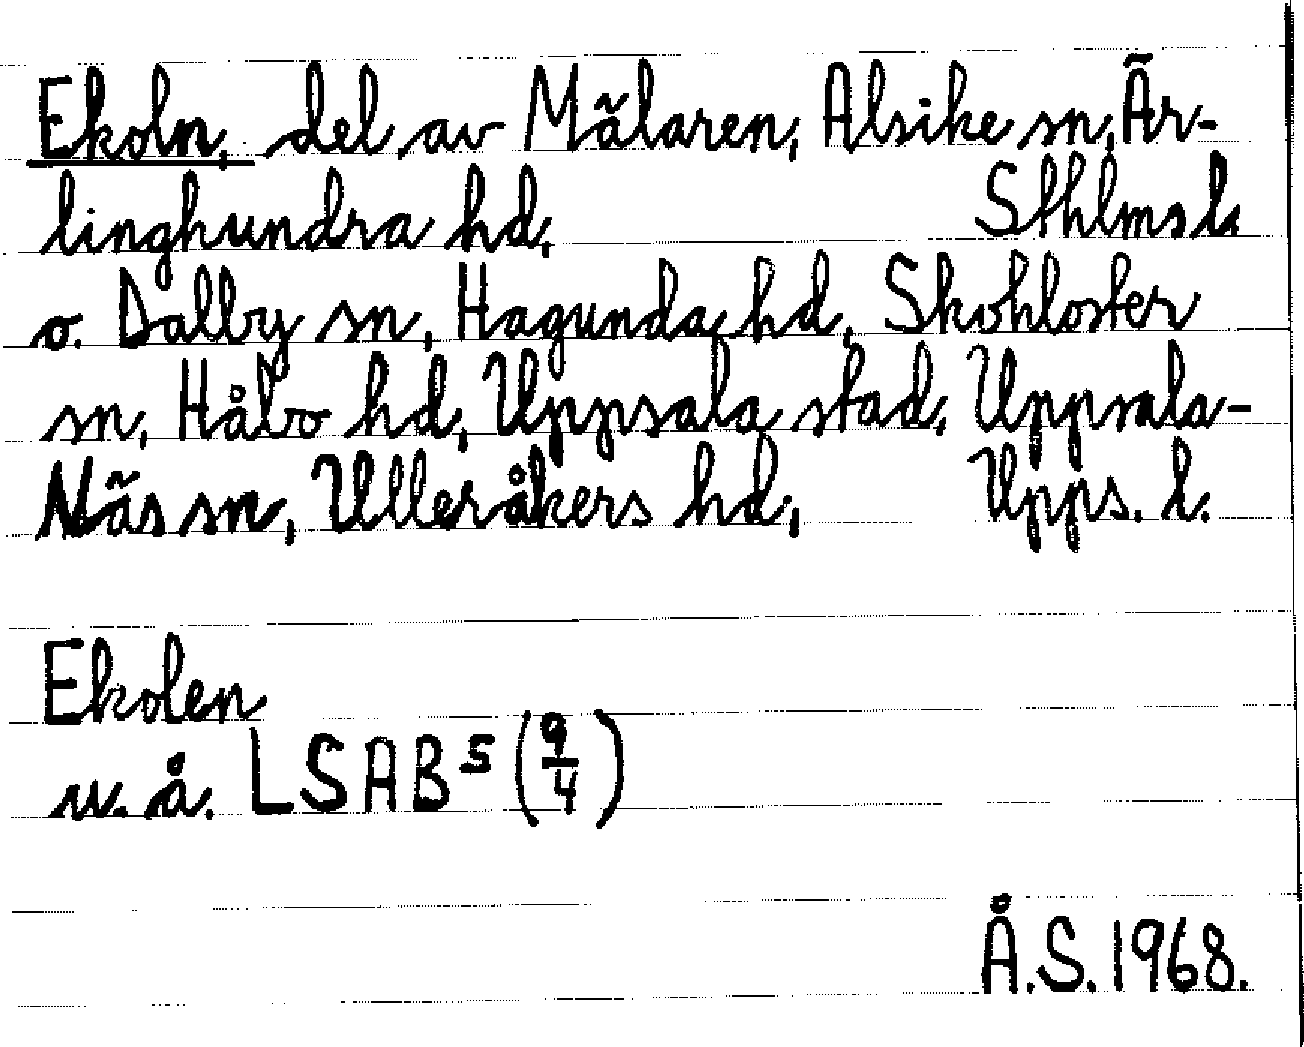 Ekoln, del av Mälaren, Alsike sn, Är-
linghundra hd, Sthlms l.
o. Dalby sn, Hagunda hd, Skokloster
sn, Håbo hd, Uppsala stad, Uppsala-
Näs sn, Ulleråkers hd, Upps. l.
Ekolen
u. å. LSAB⁵ (9/4)
Å.S. 1968.